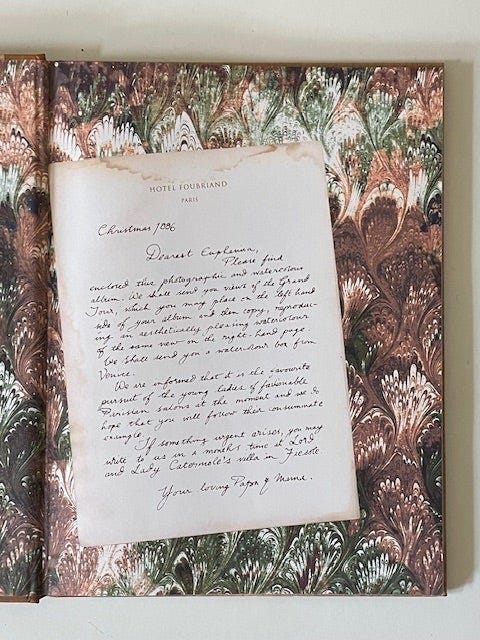 HOTEL FOUBRIAND
PARIS
Christmas
Dearest Euphemia,
Please find
enclosed this photographic and watercolour
album. We shall send you views of the Grand
Tour, which you may place on the left hand
side of your album and then copy, reproduc-
ing an aesthetically pleasing watercolour
of the same view on the right hand page.
We shall send you a watercolour box from
Venice.
We are informed that it is the favourite
pursuit of the young ladies of fashionable
Parisian salons at the moment and we do
hope that you will follow their consummate
example.
If something urgent arises, you may
write to us in a month's time at Lord
and Lady Catermole's villa in Fiesole
Your loving Papa & Mama.